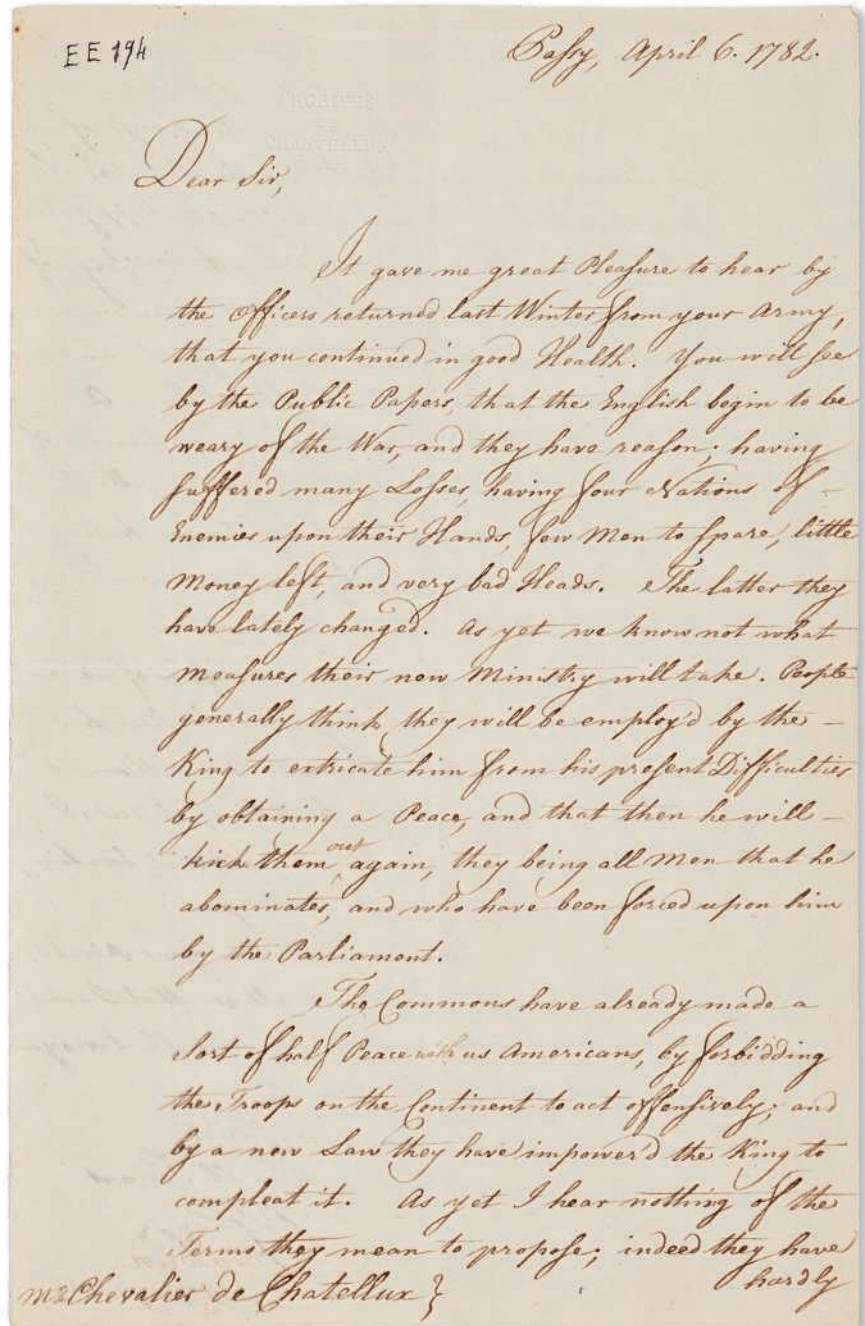 EE 194
Passy, April 6. 1782.
ARCHIVES
DE
CHASTELLUX
Dear Sir,
It gave me great Pleasure to hear by
the Officers returned last Winter from your Army,
that you continued in good Health. You will see
by the Public Papers, that the English begin to be
weary of the War, and they have reason; having
suffered many Losses, having four Nations of -
Enemies upon their Hands, few Men to spare, little
Money left, and very bad Heads. The latter they
have lately changed. As yet we know not what
Measures their new Ministry will take. People
generally think they will be employ'd by the -
King to extricate him from his present Difficulties
by obtaining a Peace, and that then he will -
kick them out again, they being all Men that he
abominates, and who have been forced upon him
by the Parliament.
The Commons have already made a
Sort of half Peace with us Americans, by forbidding
the Troops on the Continent to act offensively; and
by a new Law they have impower'd the King to
compleat it. As yet I hear nothing of the
Terms they mean to propose; indeed they have
hardly
Mr. Chevalier de Chatellux}